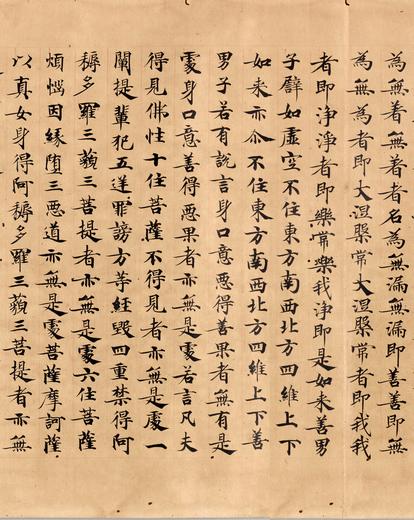 為無着無着者名為無漏無漏即善善即無
為無為者即大涅槃常大涅槃常者即我我
者即淨淨者即樂常樂我淨即是如来善男
子譬如虛空不住東方南西北方四維上下
如来亦尒不住東方南西北方四維上下善
男子若有說言身口意惡得善果者無有是
處身口意善得惡果者亦無是處若言凡夫
得見佛性十住菩薩不得見者亦無是處一
闡提輩犯五逆罪謗方等經毀四重禁得阿
耨多羅三藐三菩提者亦無是處六住菩薩
煩惱因緣墮三惡道亦無是處菩薩摩訶薩
以真女身得阿耨多羅三藐三菩提者亦無